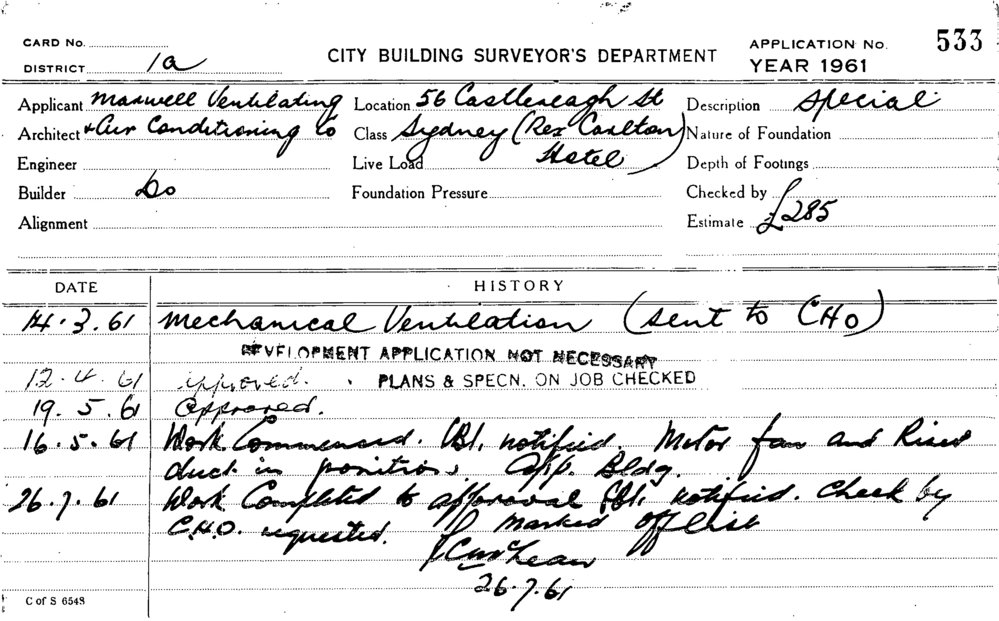 CARD No.
DISTRICT 1a
CITY BUILDING SURVEYOR'S DEPARTMENT
APPLICATION No. 533
YEAR 1961
Applicant Maxwell Ventilating Location 56 Castlereagh St Description Special
Architect + Air Conditioning Co Class Sydney (Rex Carlton) Nature of Foundation
Engineer Live Load Hotel Depth of Footings
Builder Do Foundation Pressure Checked by
Alignment Estimate £285
DATE HISTORY
14.3.61 Mechanical Ventilation (sent to CHO)
DEVELOPMENT APPLICATION NOT NECESSARY
12.4.61 approved. PLANS & SPECN. ON JOB CHECKED
19.5.61 Approved.
16.5.61 Work Commenced. notified. Motor fan and Riser
duct in position. App. Bldg.
26.7.61 Work Completed to approval notified. Check by
C.H.O. requested. Marked off list
26.7.61
C of S 6548